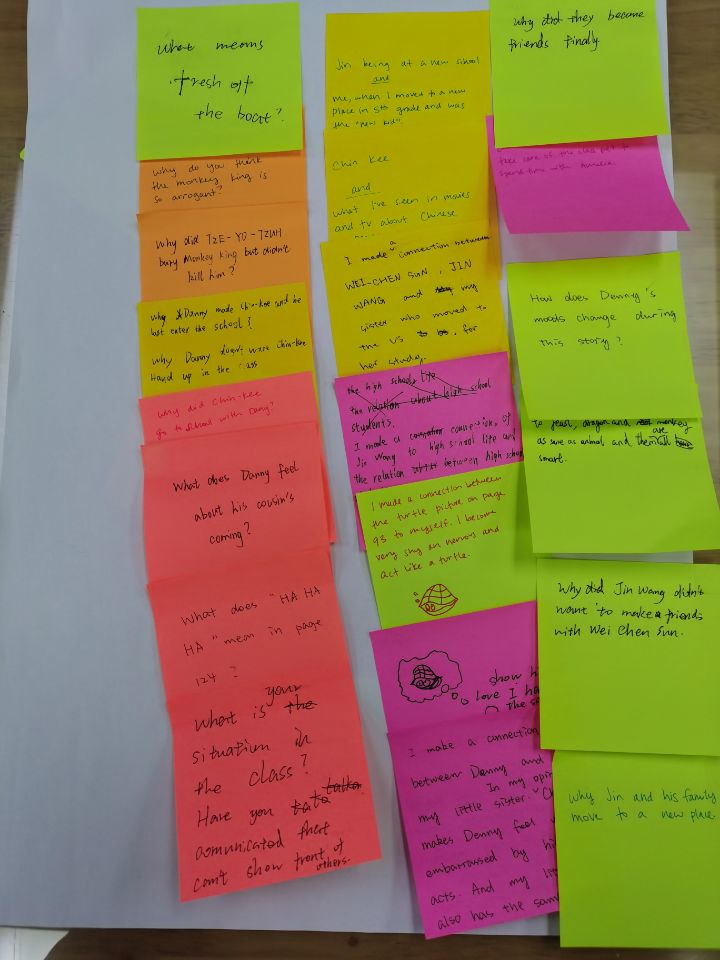 what means
fresh off
the boat?
why do you think
the monkey king is
so arrogant?
Why did TZE-YO-TZUH
bury Monkey king but didn't
kill him?
why Danny made Chin-kee and he
last enter the school?
Why Danny doesn't want Chin-kee
Hand up in the class
Why did Chin-Kee
go to school with Dany?
What does Danny feel
about his cousin's
coming?
What does "HA HA
HA" mean in page
124 ?
What is the your
situation in
the class?
Have you
comunicated
can't show front of
others.
Jin being at a new school
and
me, when I moved to a new
place in 5th grade and was
the "new kid".
Chin Kee
and
what I've seen in movies
and tv about Chinese
I made a connection between
WEI-CHEN SUN, JIN
WANG and my
sister who moved to
the US for
her study.
the high school life
the relation about high school
students.
I made a connection, of
Jin Wang to high school life and
the relation between high school
I made a connection between
the turtle picture on page
93 to myself. I become
very shy an nervous and
act like a turtle.
show hi
love I ha
The so
I make a connection
between Danny and
my little sister. In my opin
makes Denny feel
embarroused by hi
acts. And my lit
also has the sam
why did they become
friends finally
take care of the class pet to
spend time with Amelia
How does Danny's
moods change during
this story?
to feast, dragon and monkey
as same as animal and them are all
smart.
Why did Jin Wang didn't
want to make friends
with Wei Chen Sun.
why Jin and his family
move to a new place